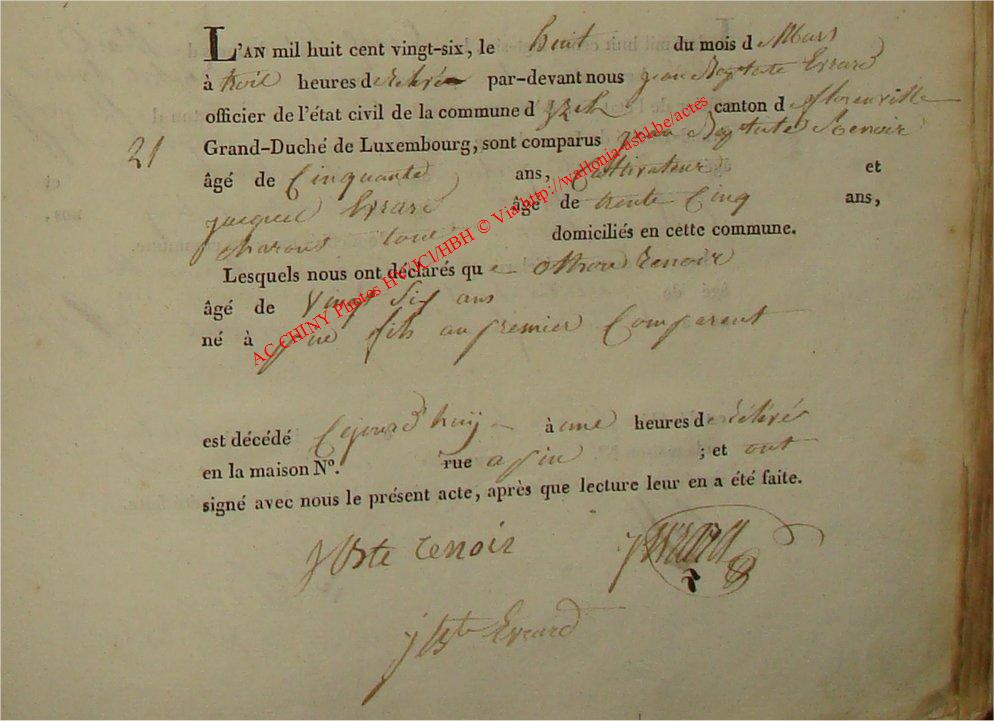 L'AN mil huit cent vingt-six, le huit du mois de Mars
à trois heures de relevé par-devant nous jean Baptiste Evrard
officier de l'état civil de la commune d'yzel canton de florenville
21 Grand-Duché de Luxembourg, sont comparus jean Baptiste Renoir
âgé de Cinquante ans, Cultivateur et
jacques Evrard âgé de trente Cinq ans,
charons tous domiciliés en cette commune.
Lesquels nous ont déclarés que othon renoir
âgé de Vingt Six ans
né à pin fils au premier Comparent
est décédé Cejourd'huy à une heures de relevé
en la maison N°. rue a pin ; et ont
signé avec nous le présent acte, après que lecture leur en a été faite.
J Bte renoir
j Bte Evrard
AC CHINY Photos HV/JCl/HBH © Via http://wallonia-asbl.be/actes